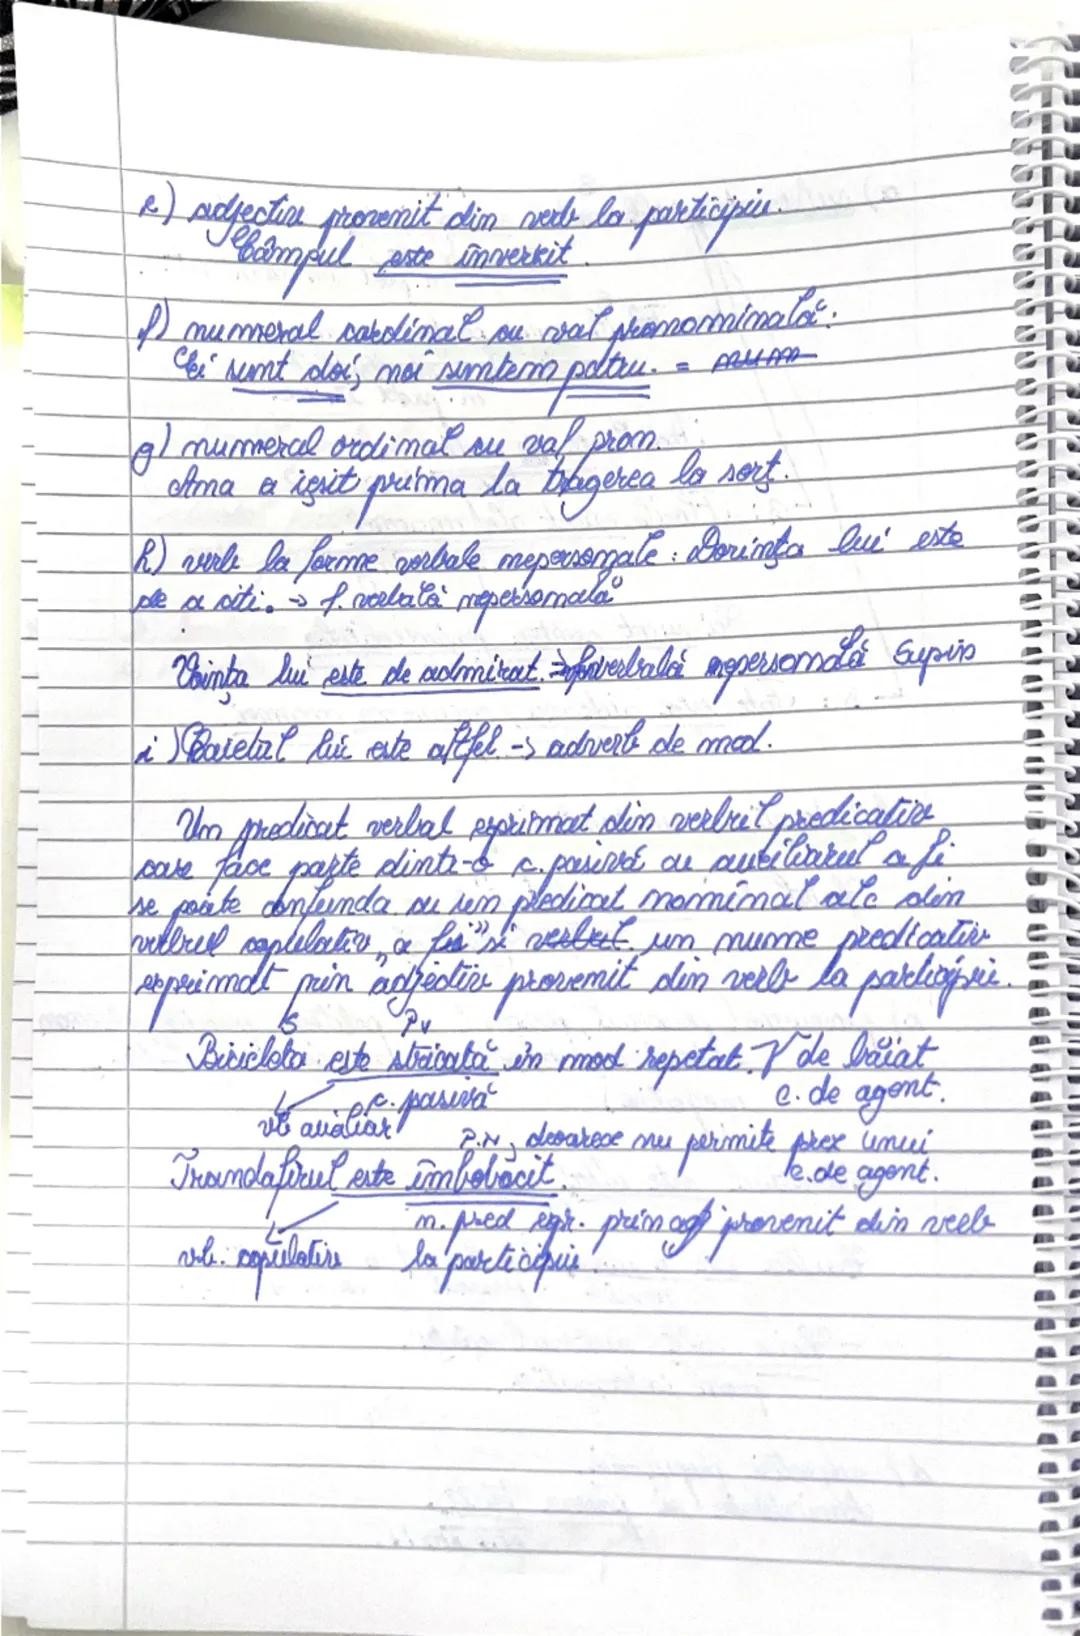 e) adjectiv provenit din verb la participiu.
Câmpul este înverzit.
f) numeral cardinal cu val pronominală:
Ei sunt doi, noi suntem patru. = num
g) numeral ordinal cu val pron.
Ana a ieșit prima la tragerea la sorț.
h) verb la forme verbale nepersonale: Dorința lui este
de a citi. → f. verbală nepersonală
Voința lui este de admirat. → f. verbală nepersonală Supin
i) Băiatul lui este astfel → adverb de mod.
Un predicat verbal exprimat din verbul predicativ
care face parte dintr-o c. pasivă cu auxiliarul a fi
se poate confunda cu un predicat nominal alc din
verbul copulativ „a fi” și verbul un nume predicativ
exprimat prin adjectiv provenit din verb la participiu.
S Pv
Bicicleta este stricată în mod repetat. V de băiat
c. pasivă c. de agent.
vb auxiliar P.N, deoarece nu permite prez unui
Trandafirul este îmbobocit. c. de agent.
n. pred exp. prin adj provenit din verb
vb. copulativ la participiu.